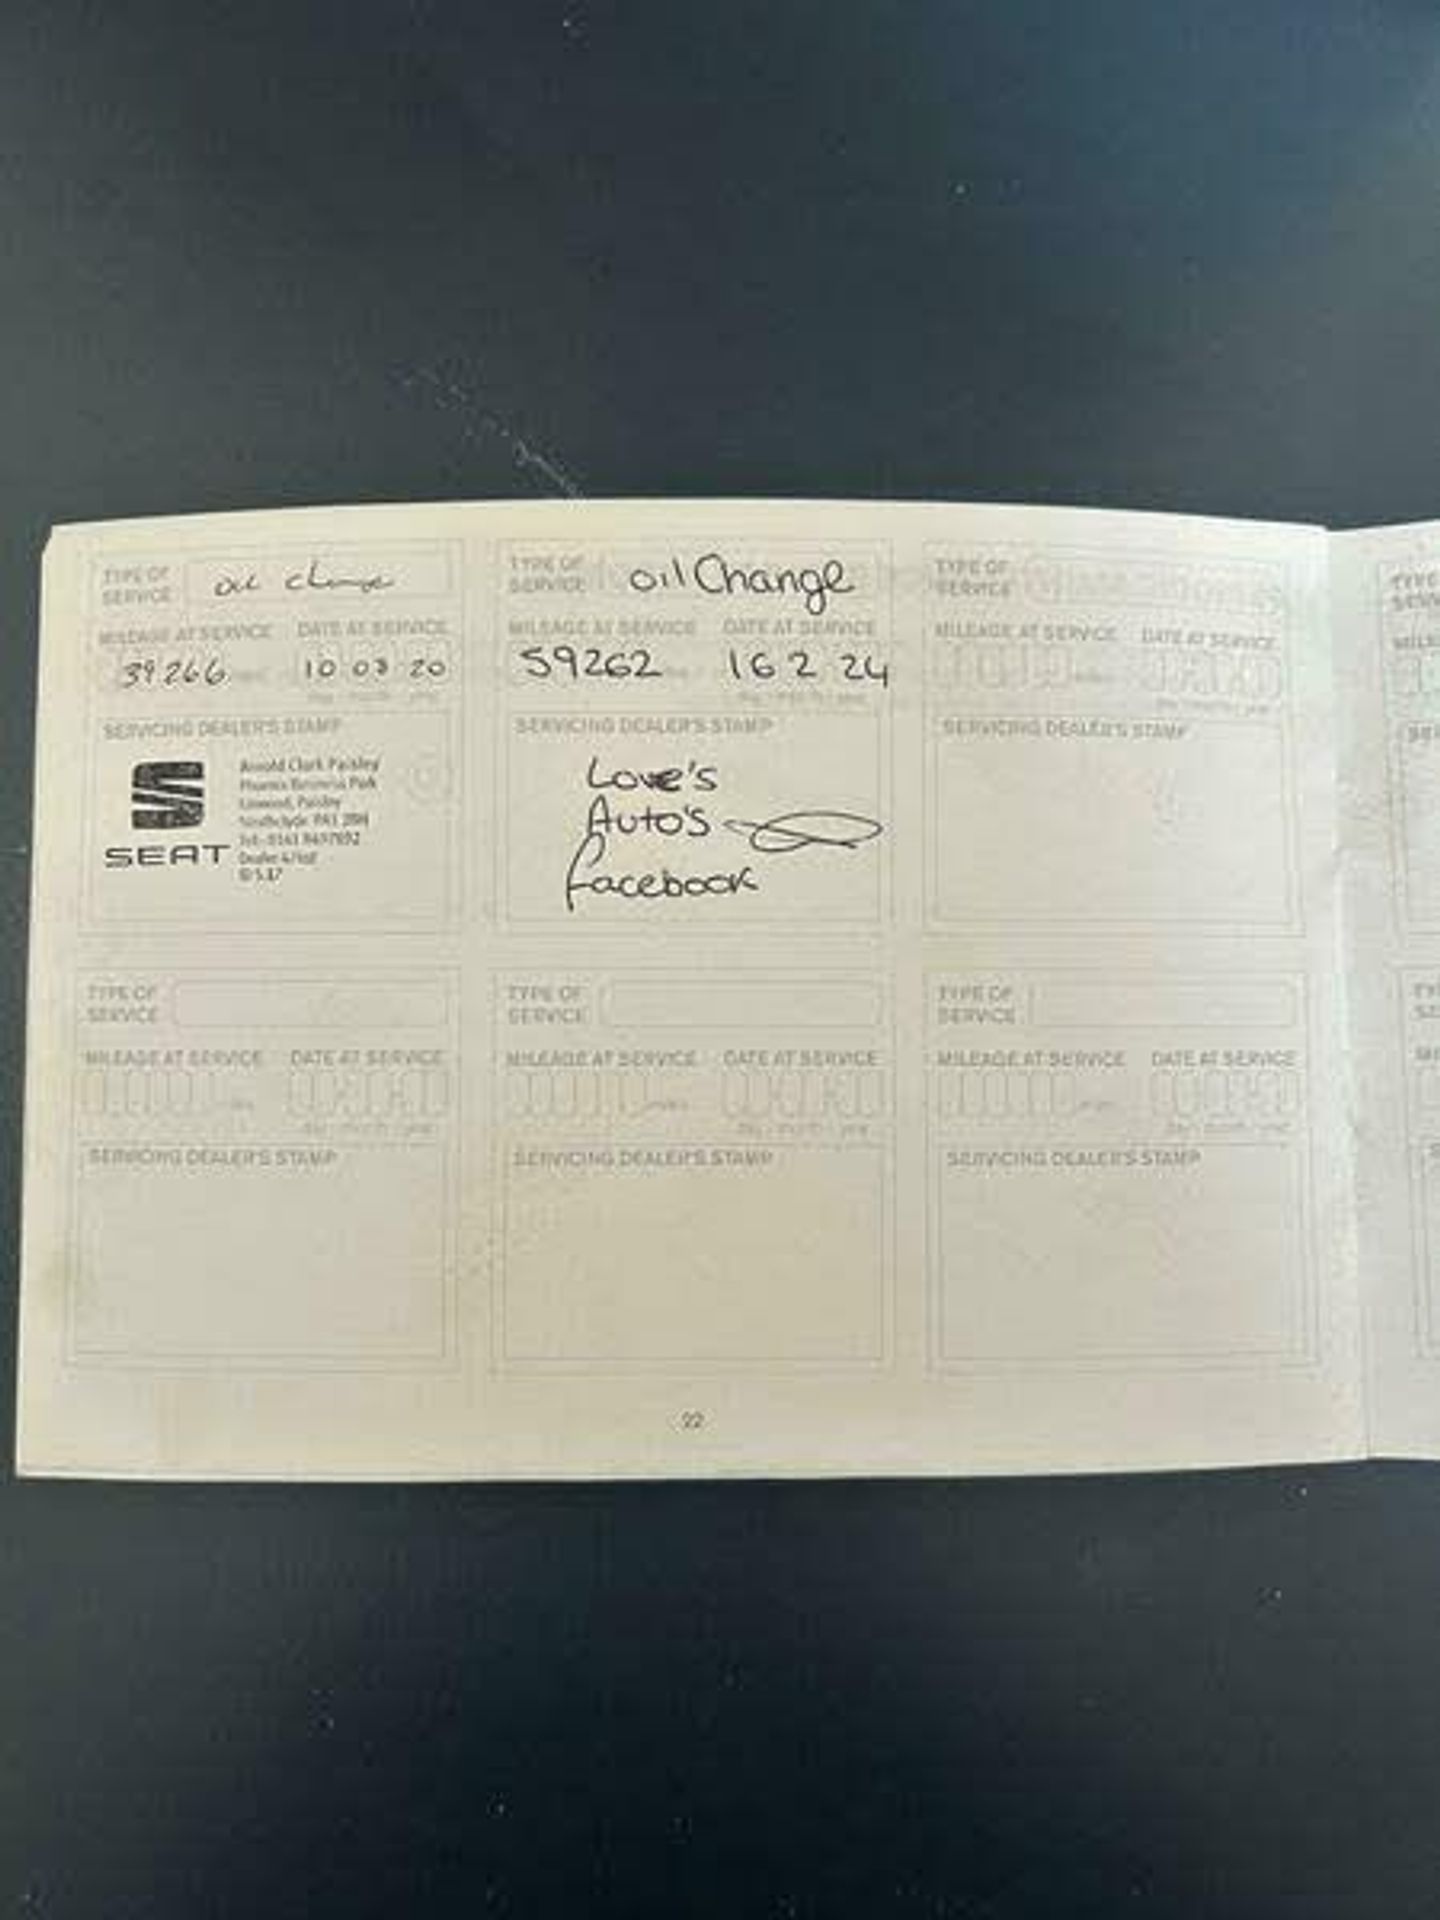 TYPE OF
SERVICE
oil change
MILEAGE AT SERVICE DATE AT SERVICE
39266 10 03 20
SERVICING DEALER'S STAMP
SEAT
Arnold Clark Paisley
Phoenix Business Park
Linwood, Paisley
Strathclyde PA1 2BH
Dealer
TYPE OF
SERVICE
oil Change
MILEAGE AT SERVICE DATE AT SERVICE
59262 16 2 24
day month year
SERVICING DEALER'S STAMP
Love's
Auto's
facebook
TYPE OF
SERVICE
MILEAGE AT SERVICE DATE AT SERVICE
day month year
SERVICING DEALER'S STAMP
TYPE OF
SERVICE
MILEAGE AT SERVICE DATE AT SERVICE
day month year
SERVICING DEALER'S STAMP
TYPE OF
SERVICE
MILEAGE AT SERVICE DATE AT SERVICE
miles
day month year
SERVICING DEALER'S STAMP
TYPE OF
SERVICE
MILEAGE AT SERVICE DATE AT SERVICE
miles
day month year
SERVICING DEALER'S STAMP
22